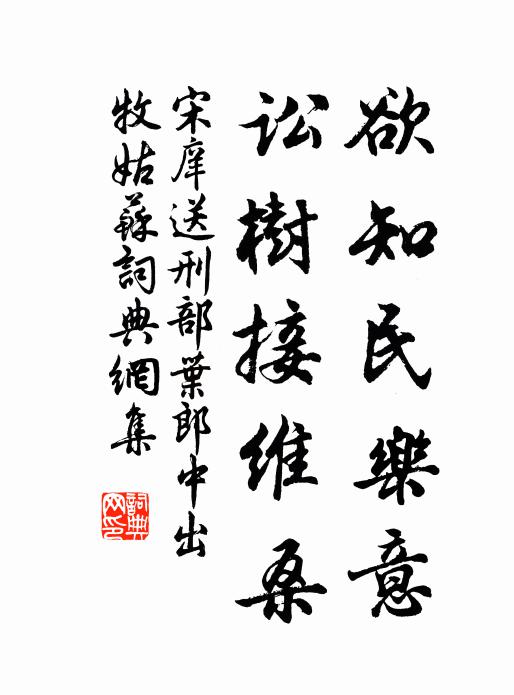 欲知民樂意
訟樹接維桑
宋庠送刑部葉郎中出
牧姑蘇詞典網集
詞典網印